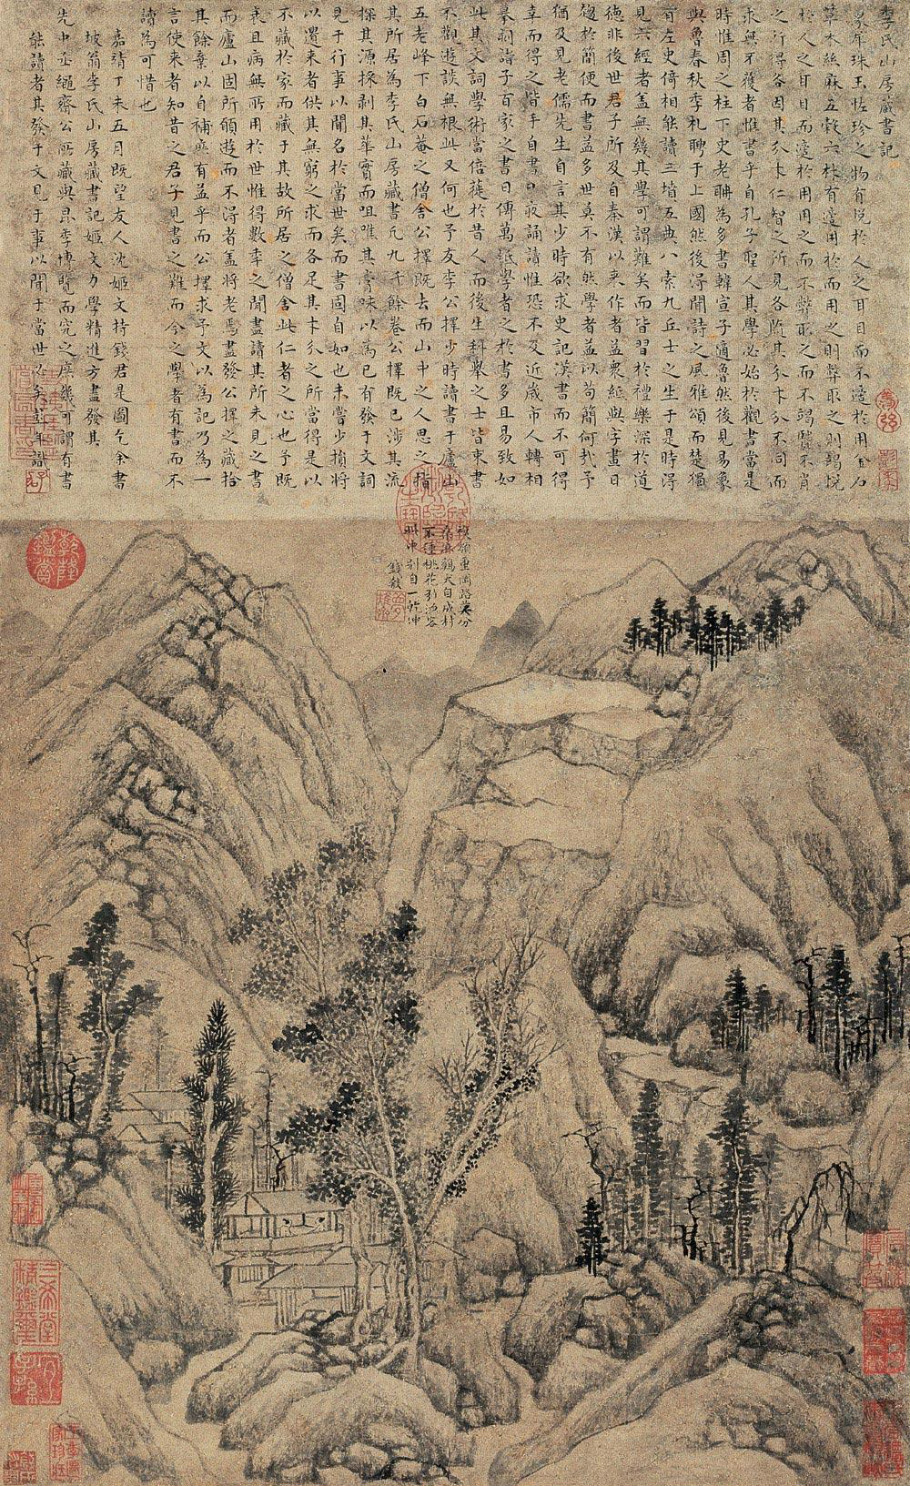 李氏山房藏書記
象犀珠玉恠珍之物有悅於人之耳目而不適於用金石
草木絲麻五穀六材有適用於而用之則弊取之則竭悅
於人之耳目而適於用用之而不弊取之而不竭賢不肖
之所得各因其才仁智之所見各隨其分才分不同而
求無不獲者惟書乎自孔子聖人其學必始於觀書當是
時惟周之柱下史老聃為多書韓宣子適魯然後見易象
與魯春秋季札聘于上國然後得聞詩之風雅頌而楚獨
有左史倚相能讀三墳五典八索九丘士之生于是時得
見六經者蓋無幾其學可謂難矣而皆習於禮樂深於道
德非後世君子所及自秦漢以來作者益眾紙與字畫日
趨於簡便而書益多世莫不有然學者益以苟簡何哉予
猶及見老儒先生自言其少時欲求史記漢書而不可得
幸而得之皆手自書日夜誦讀惟恐不及近歲市人轉相
摹刻諸子百家之書日傳萬紙學者之於書多且易致如
此其文詞學術當倍蓰於昔人而後生科舉之士皆束書
不觀遊談無根此又何也予友李公擇少時讀書于廬山
五老峰下白石菴之僧舍公擇既去而山中之人思之指
其所居為李氏山房藏書凡九千餘卷公擇既已涉其流
探其源採剝其華實而咀嚼其膏味以為己有發于文詞
見于行事以聞名於當世矣而書固自如也未嘗少損將
以遺來者供其無窮之求而各足其才分之所當得是以
不藏於家而藏于其故所居之僧舍此仁者之心也予既
衰且病無所用於世惟得數年之閒盡讀其所未見之書
而廬山固所願遊而不得者蓋將老焉盡發公擇之藏拾
其餘棄以自補庶有益乎而公擇求予文以為記乃為一
言使來者知昔之君子見書之難而今之學者有書而不
讀為可惜也
嘉靖丁未五月既望友人沈姬文持錢君是圖乞余書
坡翁李氏山房藏書記姬文力學精進方盡發其
先中丞繩齋公所藏與昆季博覽而究之庶幾可謂有書
能讀者其發于文見于事以聞于當世必矣彭年識
重岡路莫分
自成村
桃花引酒客
錢穀
乾隆鑑賞
三希堂精鑑璽
宜子孫